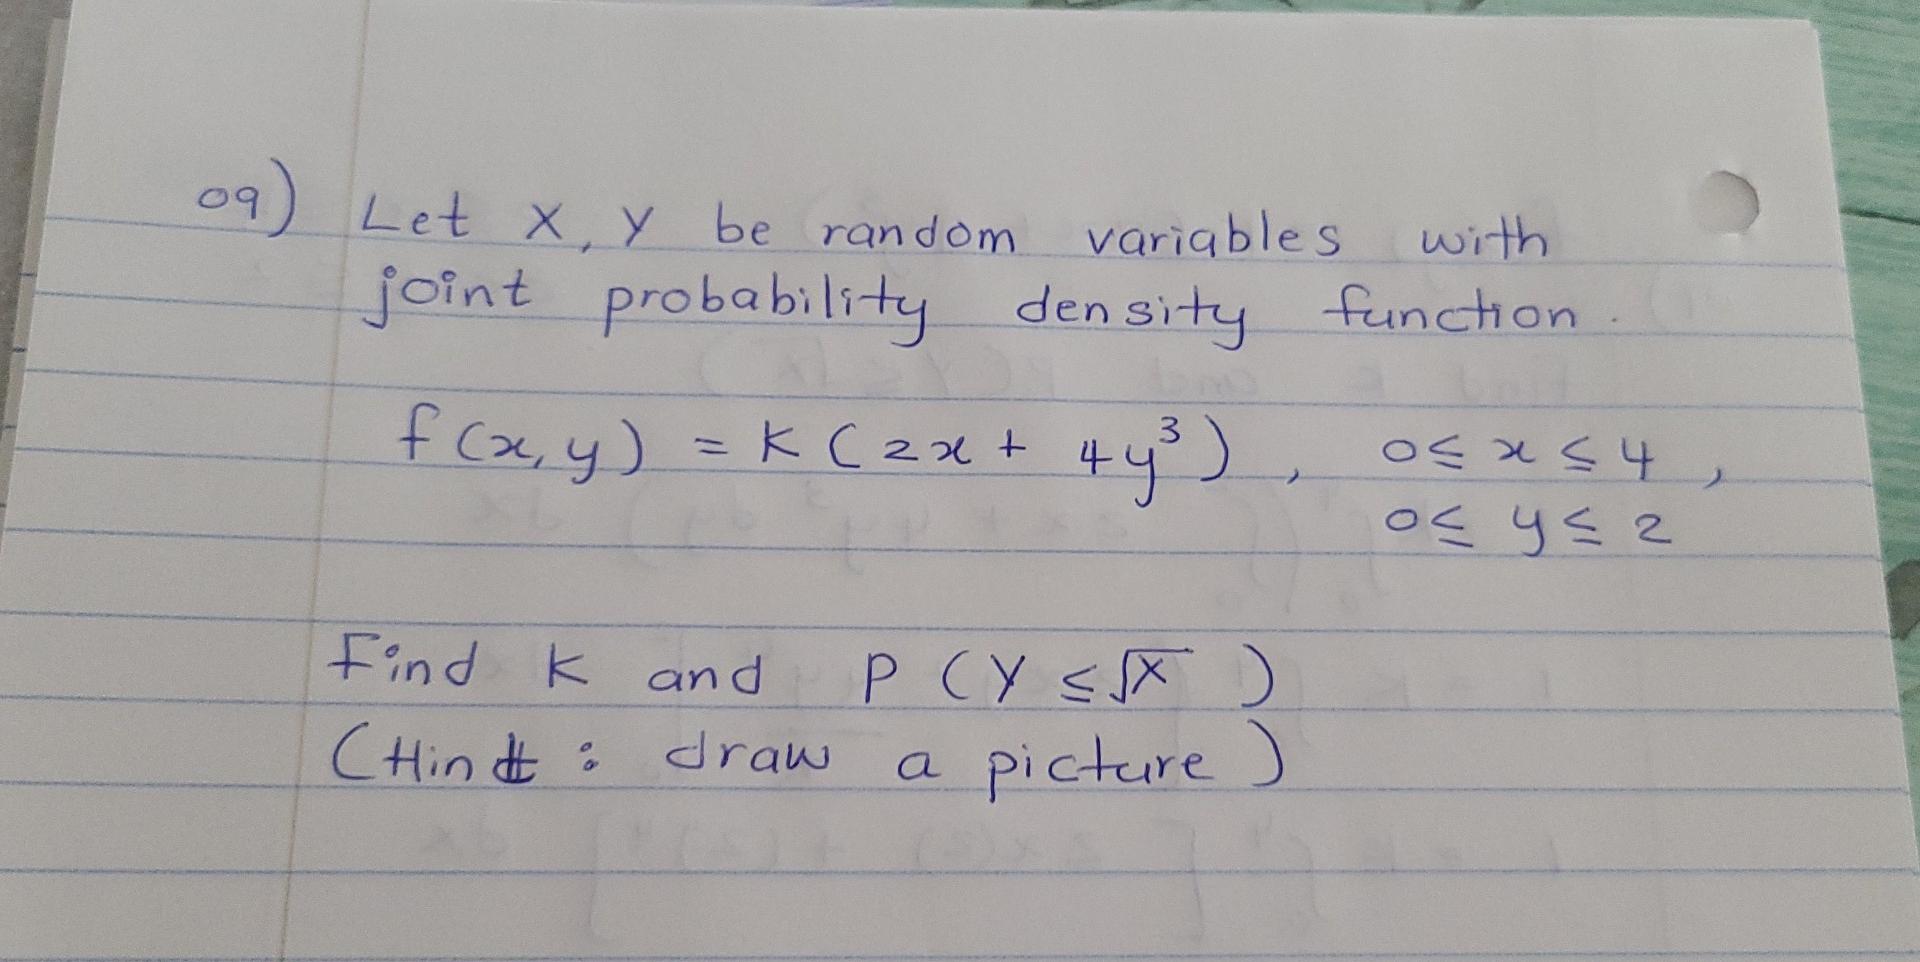 09) Let X, Y be random variables with
joint probability density function.
f(x,y) = K(2x + 4y³), 0≤x≤4,
0≤ y≤2
Find K and P(Y≤√X)
(Hint: draw a picture)